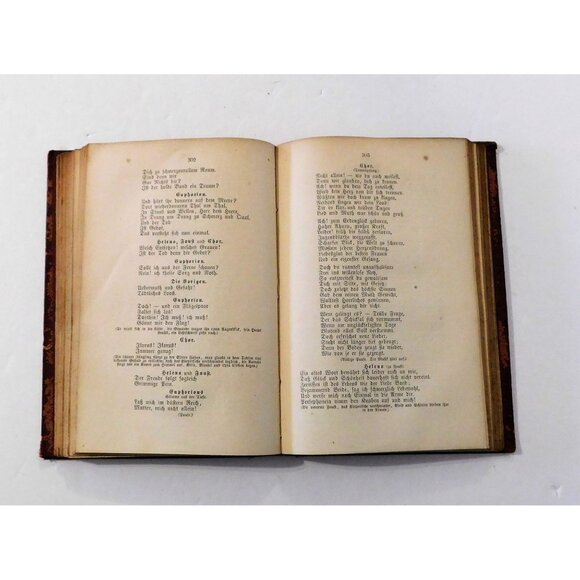 302
Dich zu schmerzenvollem Raum.
Sind denn wir
Gar Nichts dir?
Ist der holde Bund ein Traum?
Euphorion.
Und hört ihr donnern auf dem Meere?
Dort wiederdonnern Thal um Thal,
In Staub und Wellen, Heer dem Heere,
In Drang um Drang zu Schmerz und Qual.
Und der Tod
Ist Gebot,
Das versteht sich nun einmal.
Helena, Faust und Chor.
Welch Entsetzen! welches Grauen!
Ist der Tod denn dir Gebot?
Euphorion.
Sollt' ich aus der Ferne schauen?
Nein! ich theile Sorg' und Noth.
Die Vorigen.
Uebermuth und Gefahr!
Tödtliches Loos.
Euphorion.
Doch! — und ein Flügelpaar
Faltet sich los!
Dorthin! Ich muß! ich muß!
Gönnt mir den Flug!
Chor.
Ikarus! Ikarus!
Jammer genug!
Helena und Faust.
Der Freude folgt sogleich
Grimmige Pein.
Euphorions
Stimme aus der Tiefe.
Laß mich im düstern Reich,
Mutter, mich nicht allein!
(Pause.)
303
Chor.
(Trauergesang.)
Nicht allein! — wo du auch weilest,
Denn wir glauben, dich zu kennen.
Ach! wenn du dem Tag enteilest,
Wird kein Herz von dir sich trennen.
Wüßten wir doch kaum zu klagen,
Neidend singen wir dein Loos:
Dir in klar- und trüben Tagen
Lied und Muth war schön und groß.
Ach! zum Erdenglück geboren,
Hoher Ahnen, großer Kraft,
Leider! früh dir selbst verloren,
Jugendblüthe weggerafft.
Scharfer Blick, die Welt zu schauen,
Mitsinn jedem Herzensdrang,
Liebesgluth der besten Frauen
Und ein eigenster Gesang.
Doch du ranntest unaufhaltsam
Frei ins willenlose Netz,
So entzweitest du gewaltsam
Dich mit Sitte, mit Gesetz;
Doch zuletzt das höchste Sinnen
Gab dem reinen Muth Gewicht,
Wolltest Herrliches gewinnen,
Aber es gelang dir nicht.
Wem gelingt es? — Trübe Frage,
Der das Schicksal sich vermummt,
Wenn am unglückseligsten Tage
Blutend alles Volk verstummt.
Doch erfrischet neue Lieder,
Steht nicht länger tief gebeugt;
Denn der Boden zeugt sie wieder,
Wie von je er sie gezeugt.
(Völlige Pause. Die Musik hört auf.)
Helena (zu Faust).
Ein altes Wort bewährt sich leider auch an mir,
Daß Glück und Schönheit dauerhaft sich nicht vereint.
Zerrissen ist des Lebens wie der Liebe Band;
Bejammernd Beide, sag' ich schmerzlich Lebewohl,
Und werfe mich noch Einmal in die Arme dir.
Persephoneia nimm den Knaben auf und mich!
(Sie umarmt Faust, das Körperliche verschwindet, Kleid und Schleier bleiben ihm
in den Armen.)